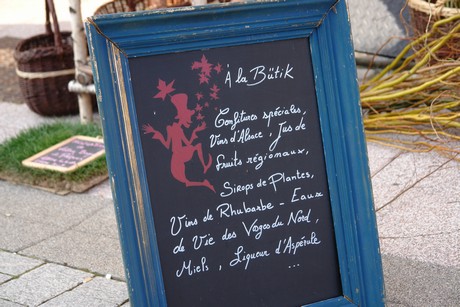 À la Bütik
Confitures spéciales,
Vins d'Alsace, Jus de
fruits régionaux,
Sirops de Plantes,
Vins de Rhubarbe - Eaux
de Vie des Vosges du Nord,
Miels, Liqueur d'Aspérule
...